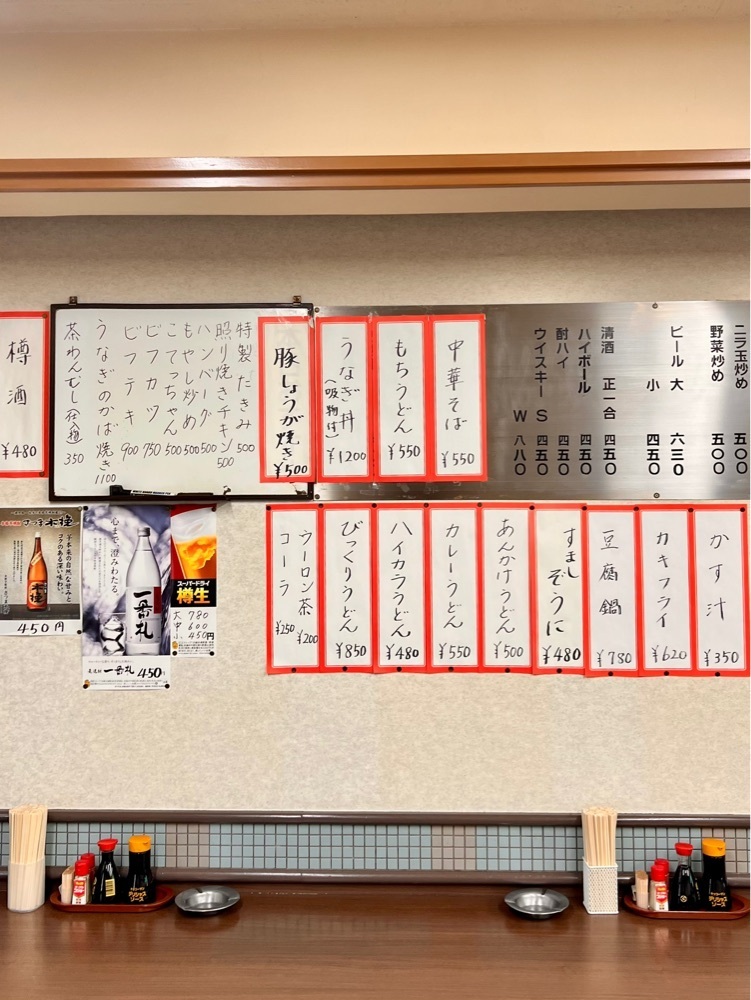 ニラ玉炒め 五〇〇
野菜炒め 五〇〇
ビール 大 六三〇
小 四五〇
清酒 正一合 四五〇
ハイボール 四五〇
酎ハイ 四五〇
ウイスキー S 四五〇
W 八八〇
中華そば ¥550
もちうどん ¥550
うなぎ丼 (吸物付) ¥1200
豚しょうが焼き ¥500
特製だきみ 500
照り焼きチキン 500
ハンバーグ 500
もやし炒め 500
こてっちゃん 500
ビフカツ 750
ビフテキ 900
うなぎのかば焼き 1100
茶わんむし 350
樽酒 ¥480
かす汁 ¥350
カキフライ ¥620
豆腐鍋 ¥780
すまし ぞうに ¥480
あんかけうどん ¥500
カレーうどん ¥550
ハイカラうどん ¥480
びっくりうどん ¥850
ウーロン茶 ¥200
コーラ ¥250
スーパードライ
樽生
大 780
中 600
小 450円
心まで、澄みわたる。
一番札
一番札 450円
さつま木挽
芋本来の自然な甘みと
コクのある深い味わい。
木挽
450円
デリシャス
ソース
デリシャス
ソース